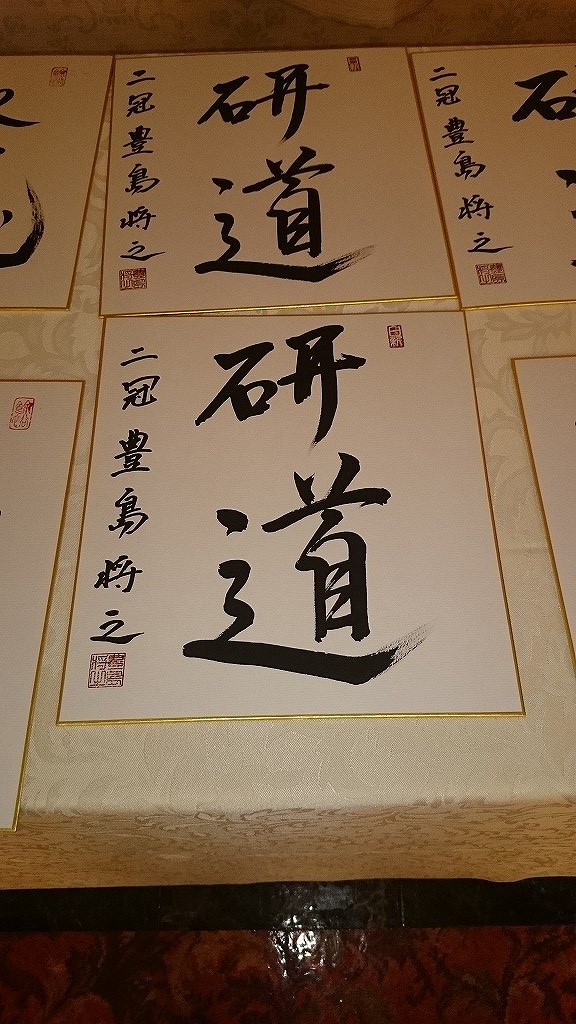 研道
二冠 豊島将之
研道
二冠 豊島将之
研
二冠 豊島将之